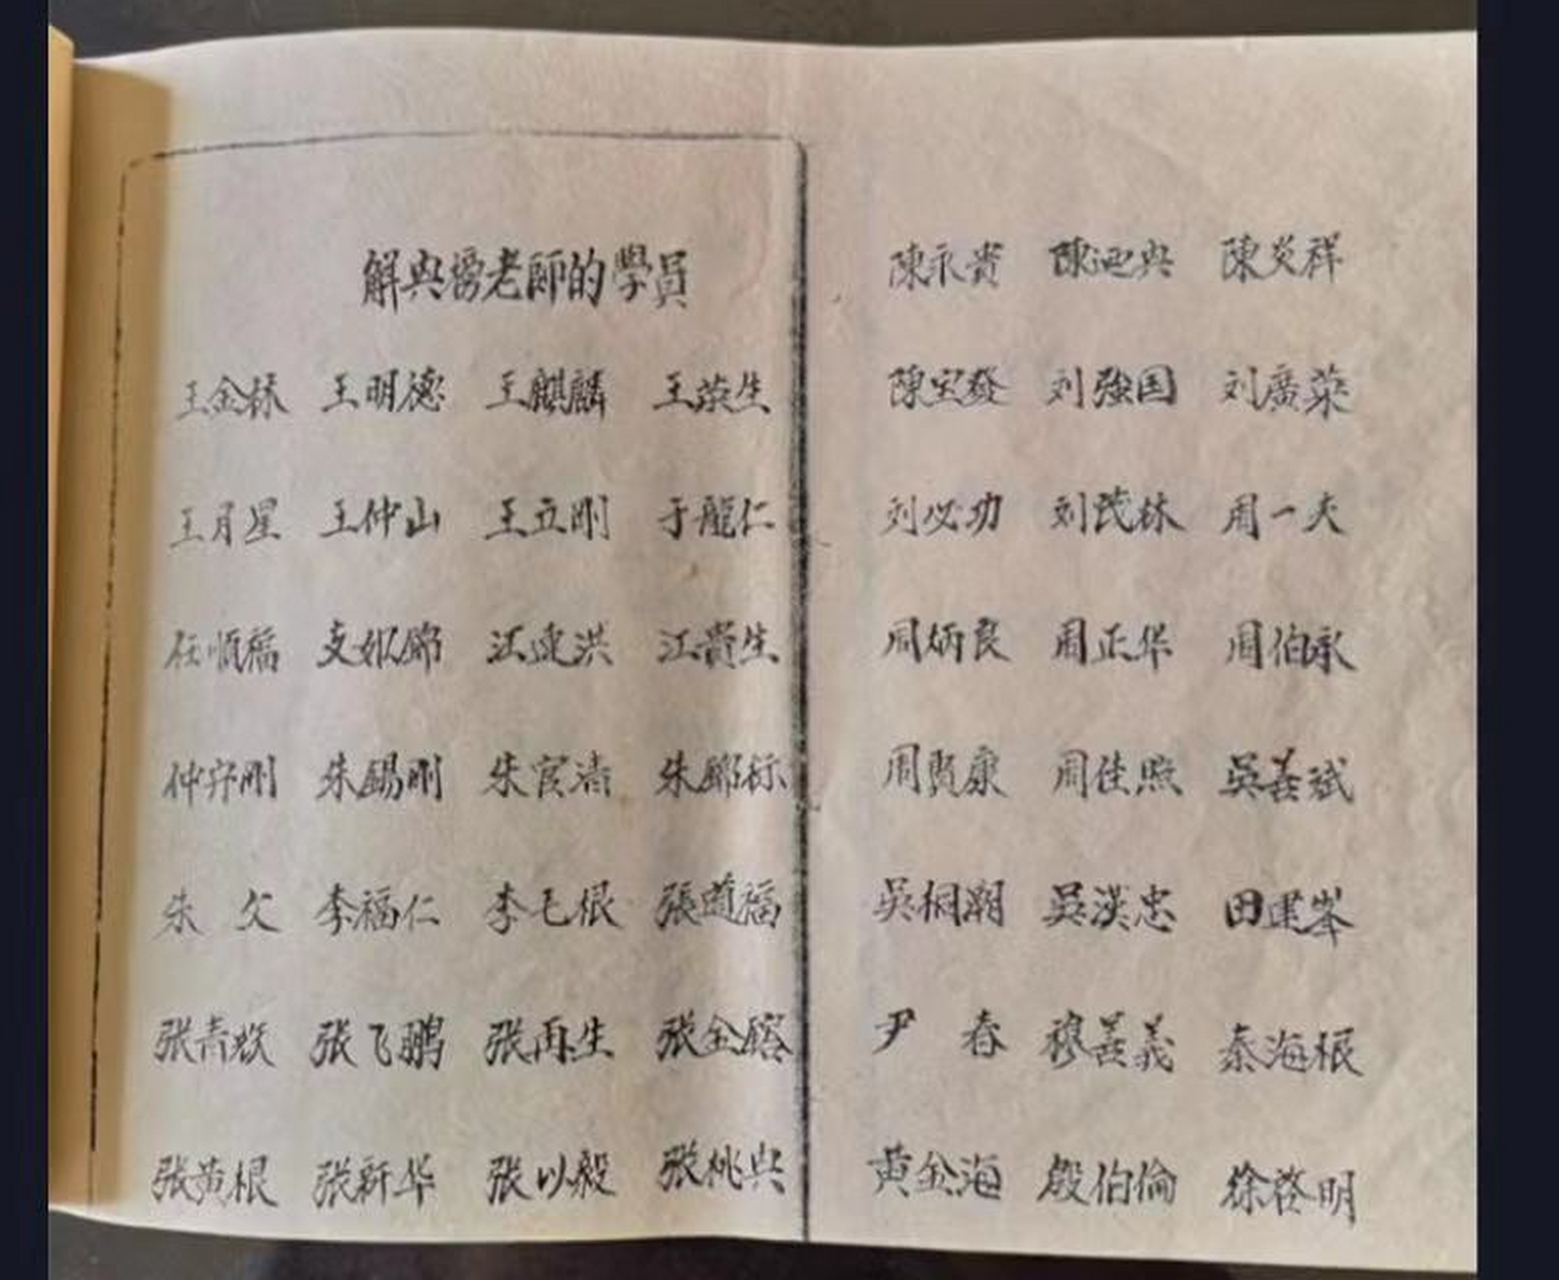 解典膺老師的學員
王金林 王明德 王麒麟 王榮生
王月星 王仲山 王立刚 于龍仁
任順福 支 江建洪 江貴生
仲守刚 朱錫刚 朱官清 朱
朱 父 李福仁 李毛根 張道福
张青 张飞鹏 张再生 张金鎔
张黄根 张新华 张以毅 张桃典
陳永貴 陳迎典 陳炎祥
陳宝發 刘強国 刘廣荣
刘必功 刘茂林 周一夫
周炳良 周正华 周伯永
周贤康 周佳照 吳善斌
吳桐潮 吳漢忠 田建岑
尹 春 穆善義 秦海根
黄金海 殷伯倫 徐啓明